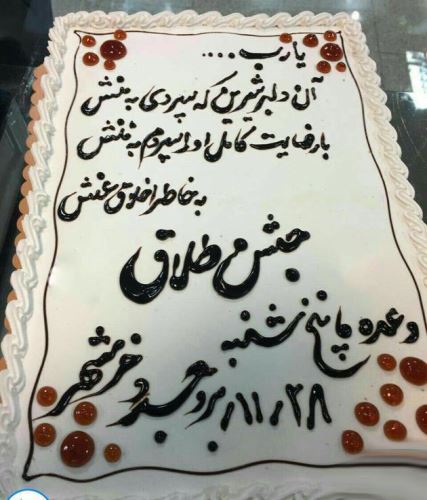 یارب....
آن دلبر شیرین که سپردی به منش
با رضایت کامل او را سپردم به ننش
به خاطر اخلاق عنش
جشن طلاق
وعده ما پنج شنبه
۱۱/۲۸ بروجرد خرمشهر